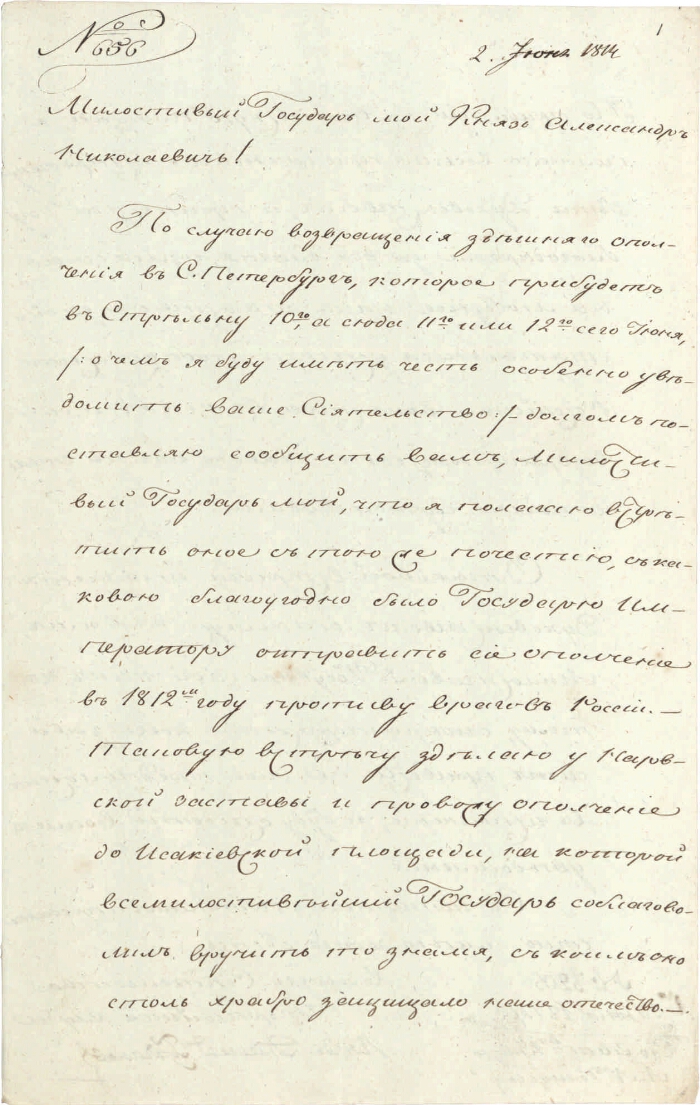 1
№ 656
2. Июня 1814
Милостивый Государь мой Князь Александръ
Николаевичь!
По случаю возвращенія здѣшняго опол-
ченія въ С. Петербургъ, которое прибудетъ
въ Стрѣльну 10го, а сюда 11го или 12го сего Іюня,
/: о чемъ я буду имѣть честь особенно увѣ-
домить ваше Сіятельство :/ долгомъ по-
ставляю сообщить вамъ, Милости-
вый Государь мой, что я полагаю встрѣ-
тить оное съ тою же почестію, съ ка-
ковою благоугодно было Государю Им-
ператору отправить сіе ополченіе
въ 1812мъ году противу враговъ Россіи. —
Таковую встрѣчу здѣлаю у Нарв-
ской заставы и провожу ополченіе
до Исакіевской площади, на которой
всемилостивѣйшій Государь соблагово-
лилъ вручить то знамя, съ коимъ оно
столь храбро защищало наше отечество. —